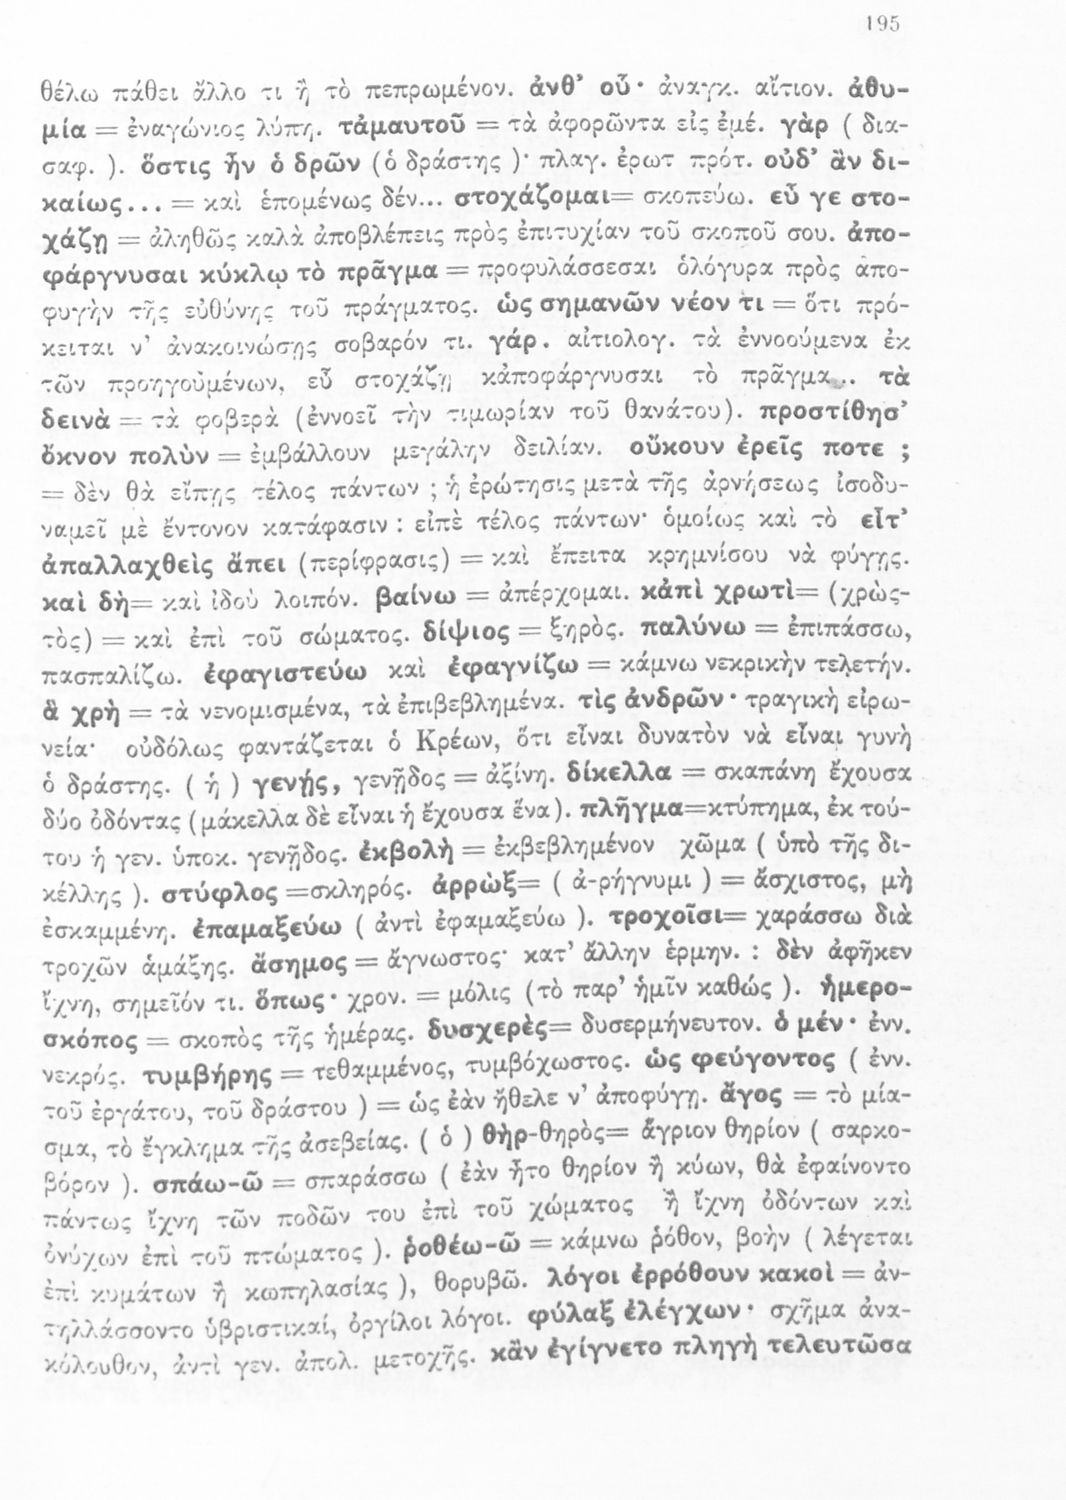 195
θέλω πάθει ἄλλο τι ἢ τὸ πεπρωμένον. ἀνθ’ οὗ· ἀναγκ. αἴτιον. ἀθυ-
μία = ἐναγώνιος λύπη. τἀμαυτοῦ = τὰ ἀφορῶντα εἰς ἐμέ. γὰρ ( δια-
σαφ. ). ὅστις ἦν ὁ δρῶν (ὁ δράστης )· πλαγ. ἐρωτ πρότ. οὐδ’ ἂν δι-
καίως... = καὶ ἑπομένως δέν... στοχάζομαι= σκοπεύω. εὖ γε στο-
χάζῃ = ἀληθῶς καλὰ ἀποβλέπεις πρὸς ἐπιτυχίαν τοῦ σκοποῦ σου. ἀπο-
φάργνυσαι κύκλῳ τὸ πρᾶγμα = προφυλάσσεσαι ὁλόγυρα πρὸς ἀπο-
φυγὴν τῆς εὐθύνης τοῦ πράγματος. ὡς σημανῶν νέον τι = ὅτι πρό-
κειται ν’ ἀνακοινώσῃς σοβαρόν τι. γάρ. αἰτιολογ. τὰ ἐννοούμενα ἐκ
τῶν προηγοὺμένων, εὖ στοχάζῃ κἀποφάργνυσαι τὸ πρᾶγμα... τὰ
δεινὰ = τὰ φοβερὰ (ἐννοεῖ τὴν τιμωρίαν τοῦ θανάτου). προστίθησ’
ὄκνον πολὺν = ἐμβάλλουν μεγάλην δειλίαν. οὔκουν ἐρεῖς ποτε ;
= δὲν θὰ εἴπῃς τέλος πάντων ; ἡ ἐρώτησις μετὰ τῆς ἀρνήσεως ἰσοδυ-
ναμεῖ μὲ ἔντονον κατάφασιν : εἰπὲ τέλος πάντων· ὁμοίως καὶ τὸ εἶτ’
ἀπαλλαχθεὶς ἄπει (περίφρασις) = καὶ ἔπειτα κρημνίσου νὰ φύγῃς.
καὶ δὴ= καὶ ἰδοὺ λοιπόν. βαίνω = ἀπέρχομαι. κἀπὶ χρωτὶ= (χρὼς-
τὸς) = καὶ ἐπὶ τοῦ σώματος. δίψιος = ξηρὸς. παλύνω = ἐπιπάσσω,
πασπαλίζω. ἐφαγιστεύω καὶ ἐφαγνίζω = κάμνω νεκρικὴν τελετήν.
ἃ χρὴ = τὰ νενομισμένα, τὰ ἐπιβεβλημένα. τὶς ἀνδρῶν· τραγικὴ εἰρω-
νεία· οὐδόλως φαντάζεται ὁ Κρέων, ὅτι εἶναι δυνατὸν νὰ εἶναι γυνὴ
ὁ δράστης. ( ἡ ) γενῄς, γενῇδος = ἀξίνη. δίκελλα = σκαπάνη ἔχουσα
δύο ὀδόντας (μάκελλα δὲ εἶναι ἡ ἔχουσα ἕνα). πλῆγμα=κτύπημα, ἐκ τού-
του ἡ γεν. ὑποκ. γενῇδος. ἐκβολὴ = ἐκβεβλημένον χῶμα ( ὑπὸ τῆς δι-
κέλλης ). στύφλος =σκληρός. ἀρρὼξ= ( ἀ-ρήγνυμι ) = ἄσχιστος, μὴ
ἐσκαμμένη. ἐπαμαξεύω ( ἀντὶ ἐφαμαξεύω ). τροχοῖσι= χαράσσω διὰ
τροχῶν ἁμάξης. ἄσημος = ἄγνωστος· κατ’ ἄλλην ἑρμην. : δὲν ἀφῆκεν
ἴχνη, σημεῖόν τι. ὅπως· χρον. = μόλις (τὸ παρ’ ἡμῖν καθώς ). ἡμερο-
σκόπος = σκοπὸς τῆς ἡμέρας. δυσχερὲς= δυσερμήνευτον. ὁ μέν· ἐνν.
νεκρός. τυμβήρης = τεθαμμένος, τυμβόχωστος. ὡς φεύγοντος ( ἐνν.
τοῦ ἐργάτου, τοῦ δράστου ) = ὡς ἐὰν ἤθελε ν’ ἀποφύγῃ. ἄγος = τὸ μία-
σμα, τὸ ἔγκλημα τῆς ἀσεβείας. ( ὁ ) θὴρ-θηρὸς= ἄγριον θηρίον ( σαρκο-
βόρον ). σπάω-ῶ = σπαράσσω ( ἐὰν ἦτο θηρίον ἢ κύων, θὰ ἐφαίνοντο
πάντως ἴχνη τῶν ποδῶν του ἐπὶ τοῦ χώματος ἢ ἴχνη ὀδόντων καὶ
ὀνύχων ἐπὶ τοῦ πτώματος ). ῥοθέω-ῶ = κάμνω ῥόθον, βοὴν ( λέγεται
ἐπὶ κυμάτων ἢ κωπηλασίας ), θορυβῶ. λόγοι ἐρρόθουν κακοὶ = ἀν-
τηλλάσσοντο ὑβριστικαί, ὀργίλοι λόγοι. φύλαξ ἐλέγχων· σχῆμα ἀνα-
κόλουθον, ἀντὶ γεν. ἀπολ. μετοχῆς. κἂν ἐγίγνετο πληγὴ τελευτῶσα